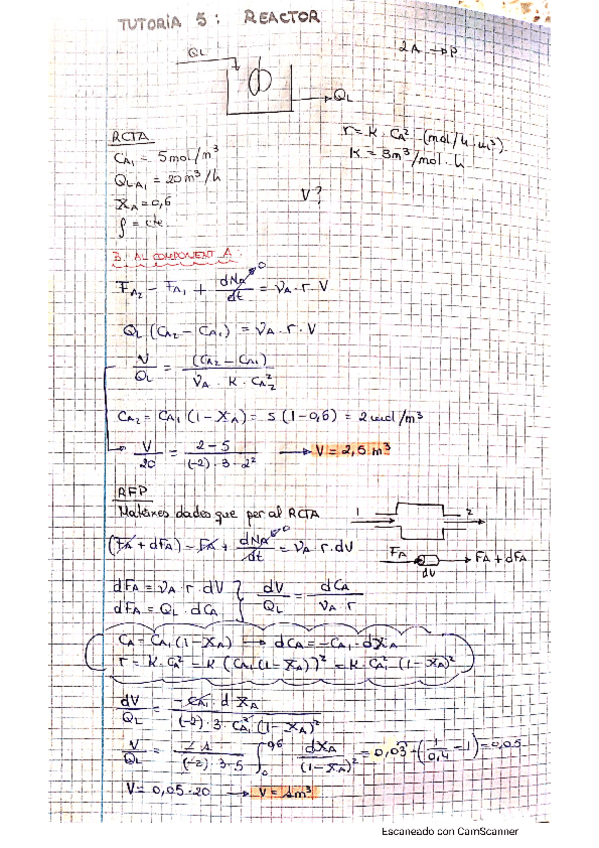 TUTORIA 5: REACTOR
QL
2A → P
QL
RCTA
r = k · CA² (mol/h·m³)
CA₁ = 5 mol/m³
k = 3 m³/mol·h
QLA₁ = 20 m³/h
V?
XA = 0,6
ρ = cte.
B. AL COMPONENT A:
FA₂ - FA₁ + dNA/dt = νA · r · V
0
QL (CA₂ - CA₁) = νA · r · V
V/QL = (CA₂ - CA₁)/νA · k · CA₂²
CA₂ = CA₁ (1 - XA) = 5 (1 - 0,6) = 2 mol/m³
V/20 = 2 - 5/(-2) · 3 · 2² → V = 2,5 m³
RFP
Mateixes dades que per al RCTA
1 2
(FA + dFA) - FA + dNA/dt = νA · r · dV
0
FA FA + dFA
dV
dFA = νA · r · dV } dV/QL = dCA/νA · r
dFA = QL · dCA
CA = CA₁ (1 - XA) → dCA = -CA₁ · dXA
r = k · CA² = k (CA₁ (1 - XA))² = k · CA₁² (1 - XA)²
dV/QL = -CA₁ · d XA/(-2) · 3 · CA₁² (1 - XA)²
dXA/(1 - XA)² = 0,03 · (1/0,4 - 1) = 0,05
V = 0,05 · 20 → V = 1 m³
Escaneado con CamScanner